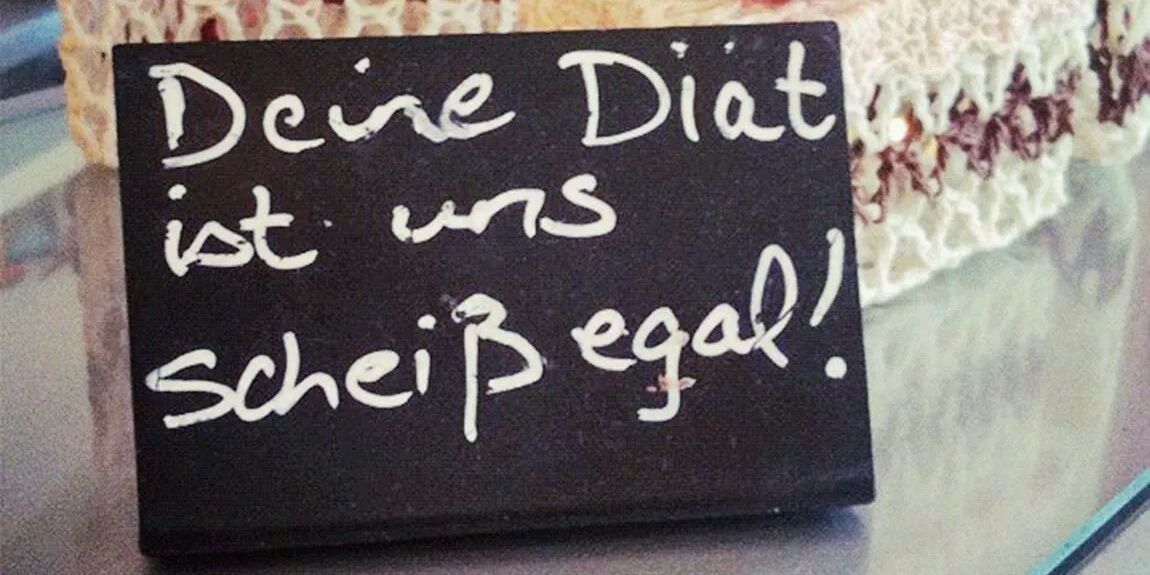 Deine Diät
ist uns
scheiß egal!